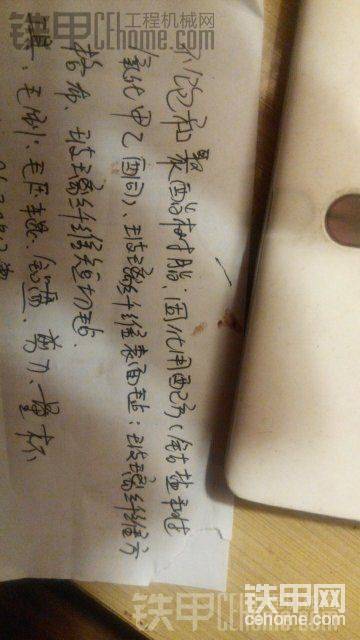 铁甲工程机械网
CEhome.com
不饱和聚酯树脂;固化用配方(钴盐和过
氧化甲乙酮)、玻璃纤维表面毡;玻璃纤维方
格布、玻璃纤维短切毡.
毛刷、剪刀、量杯
铁甲 CEhome.com
铁甲网
cehome.com